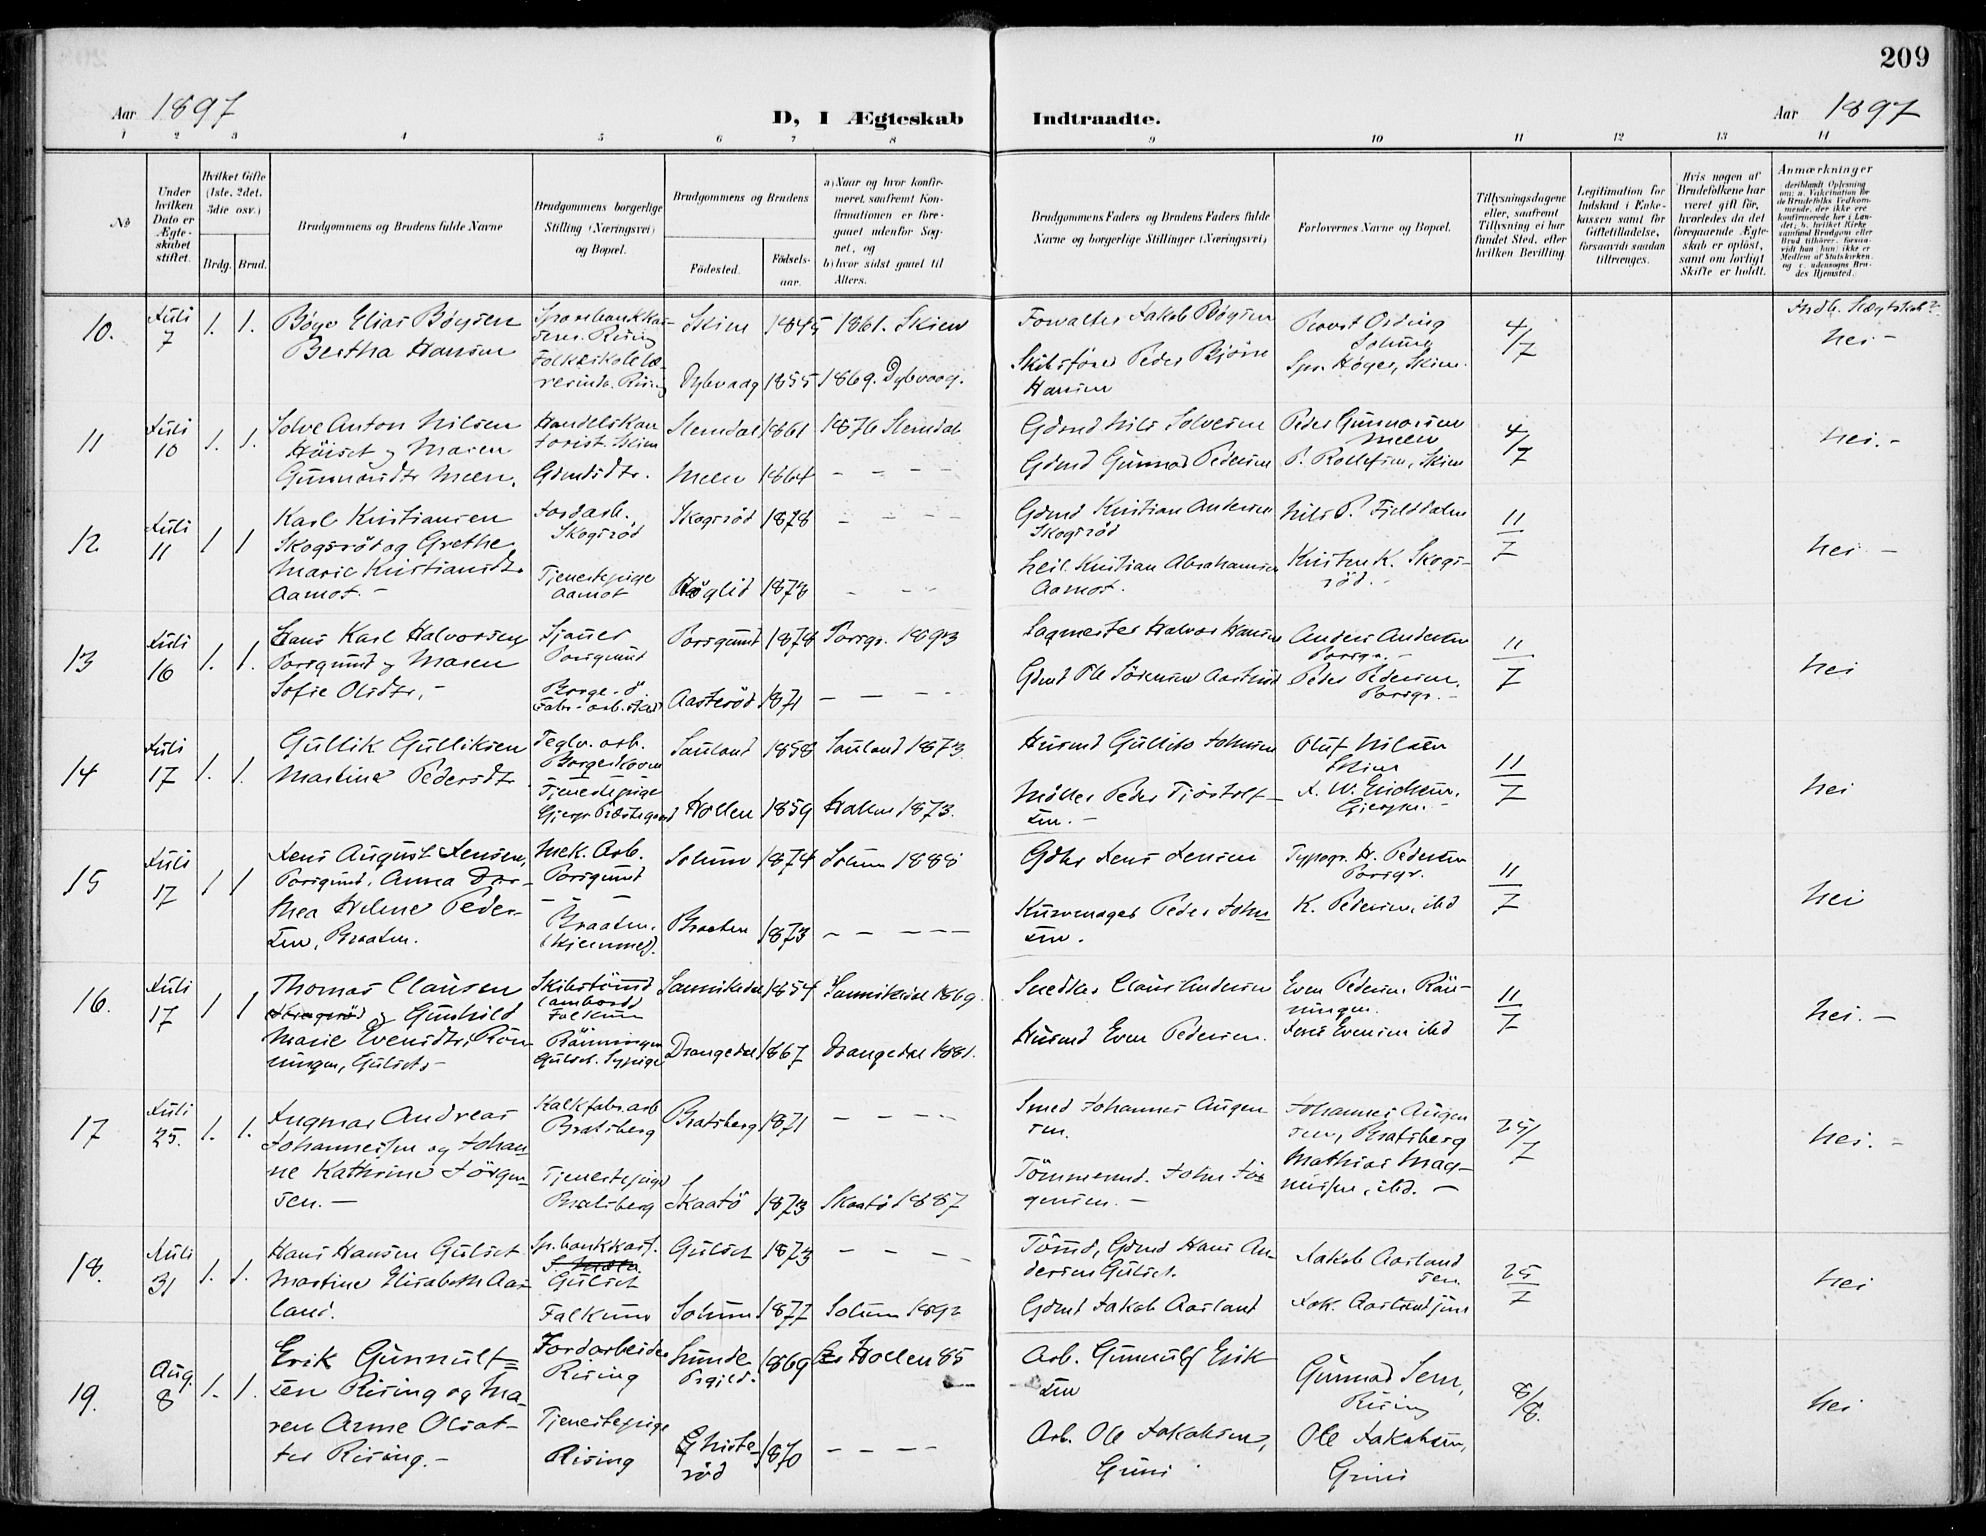 209
Aar 1897
D, I Ægteskab Indtraadte.
Aar 1897
1 2 3 4 5 6 7 8 9 10 11 12 13 14
No
Under hvilken Dato er Ægteskabet stiftet.
Hvilket Gifte (1ste, 2det, 3die osv.)
Brdg. Brud.
Brudgommens og Brudens fulde Navne
Brudgommens borgerlige Stilling (Næringsvei) og Bopæl.
Brudgommens og Brudens
Fødested.
Fødselsaar.
a) Naar og hvor konfirmeret, saafremt Konfirmationen er foregaaet udenfor Sognet, og
b) hvor sidst gaaet til Alters.
Brudgommens Faders og Brudens Faders fulde Navne og borgerlige Stillinger (Næringsvei)
Forlovernes Navne og Bopæl.
Tillysningsdagene eller, saafremt Tillysning ei har fundet Sted, efter hvilken Bevilling.
Legitimation for Indskud i Enkekassen samt for Giftetilladelse, forsaavidt saadan tiltrænges.
Hvis nogen af Brudefolkene har været gift før, hvorledes da det foregaaende Ægteskab er opløst, samt om lovligt Skifte er holdt.
Anmærkninger
deriblandt Oplysning om: a. Vakcination for de Brudefolks Vedkommende, der ikke ere konfirmerede her i Landet; b. hvilket Kirkesamfund Brudgom eller Brud tilhører, forsaavidt han (hun) ikke er Medlem af Statskirken, og c. udensogns Brudes Hjemsted.
10. Juli 7 1. 1. Bøye Elias Bøysen
Bertha Hansen
Sparebankkasserer Rising
Folkeskolelærerinde. Rising
Skien 1845 1861. Skien
Dybvaag 1855 1869. Dybvaag.
Forvalter Jakob Bøysen
Skibsfører Peder Bjørn Hansen
Provst Ording Solum
Spr. Høyer, Skien.
4/7
Indb. Slægtskab?
Nei -
11 Juli 10 1. 1. Solve Anton Nilsen
Høiset og Maren
Gunnarsdtr Meen.
Handelskontorist. Skien
Gdmdsdtr.
Slemdal 1861 1876 Slemdal
Meen 1864 - - - -
Gdmd Nils Solvesen
Gdmd Gunnar Pedersen
Peder Gunnarsen Meen
P. Rollefsen, Skien
4/7
Nei. -
12. Juli 11 1 1 Karl Kristiansen
Skogsrød og Grethe
Marie Kristiansdtr
Aamot. -
Jordarb. Skogsrød
Tjenestepige Aamot
Skogsrød 1878 - - - -
Høglid 1878 - - -
Gdmd Kristian Andersen Skogsrød
Leil. Kristian Abrahamsen Aamot.
Nils P. Fjelldalen
Kristen K. Skogsrød. -
11/7
Nei -
13 Juli 16 1. 1. Hans Karl Halvorsen,
Porsgrund og Maren
Sofie Olsdtr. -
Sjauer Porsgrund
Borge-
Fabr-arb.
Porsgrund 1878 Porsgr. 1893
Aasterød 1871 - - - -
Sagmester Halvor Hansen
Gdmd Ole Sörensen Aasterød
Anders Andersen Porsgr. -
Peder Pedersen, Porsgr. -
11/7
Nei
14 Juli 17 1. 1. Gullik Gulliksen
Martine Pedersdtr
Teglv. arb. Borgestrøm
Tjenestepige Gjerp. Præstegaard
Sauland 1858 Sauland 1873.
Hollen 1859 Hollen 1873.
Husmd Gullik Johnsen
Møller Peder Tjøstolfsen. -
Oluf Nilsen Skien
A. W. Erichsen, Gjerpen. -
11/7
Nei
15 Juli 17 1 1 Jens August Jensen,
Porsgrund, Anna Dorthea Helene Pedersen, Braaten.
Mek. Arb. Porsgrund
Braaten. (Hjemme).
Solum 1874 Solum 1888
Braaten 1873 - - - -
Gdbr Jens Jensen
Kurvmager Peder Johnsen.
Typogr. H. Pedersen Porsgr.
K. Pedersen, ibd
11/7
Nei
16. Juli 17 1 1 Thomas Clausen
og Gunhild
Marie Evensdtr, Rönningen, Gulset -
Skibstømmd (ombord) Falkum
Rönningen Gulset. Sypige
Sannikedal 1854 Sannikedal 1869.
Drangedal 1867 Drangedal 1881.
Snedker Claus Andersen
Husmd Even Pedersen.
Even Pedersen Rönningen.
Jens Evensen ibd
11/7
Nei. -
17 Juli 25. 1. 1. Ingmar Andreas
Johannessen og Johanne Kathrine Jørgensen. -
Kalkfabr. arb Bratsberg
Tjenestepige Bratsberg
Bratsberg 1871 - - - -
Skaatö 1873 Skaatö 1887
Smed Johannes Augensen.
Tömmermd. John Jörgensen. -
Johannes Augensen, Bratsberg
Mathias Magnussen, ibd. -
25/7
Nei. -
18. Juli 31 1. 1. Hans Hansen Gulset
Martine Elisabeth Aasland.
Sp. bankkass.
Gulset
Falkum
Gulset 1873 - - - -
Solum 1877 Solum 1892
Tömd, Gdmd Hans Andersen Gulset.
Gdmd Jakob Aasland
Jakob Aasland sen.
Jak. Aasland jun
25/7
Nei
19. Aug. 8 1. 1. Erik Gunnulfsen Rising og Maren Anne Olsdatter Rising. -
Jordarbeider Rising
Tjenestepige Rising
Lunde 1869 Hollen 85
Griste-rød 1870 - - - -
Arb. Gunnulf Eriksen
Arb. Ole Jakobsen, Grini
Gunnar Sem, Rising
Ole Jakobsen, Grini
8/8.
Nei